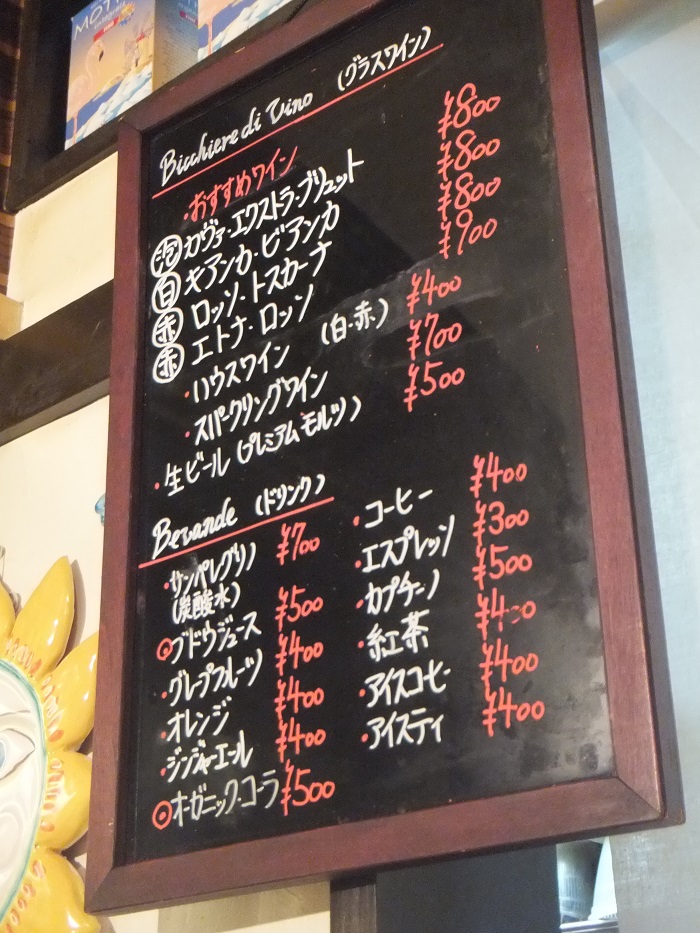 MOTT
Bicchiere di Vino (グラスワイン)
・おすすめワイン
泡 カヴァ・エクストラ・ブリュット ¥800
白 キアンカ・ビアンカ ¥800
赤 ロッソ・トスカーナ ¥800
赤 エトナ・ロッソ ¥900
・ハウスワイン (白・赤) ¥400
・スパークリングワイン ¥700
・生ビール (プレミアムモルツ) ¥500
Bevande (ドリンク)
・サンペレグリノ ¥700
(炭酸水)
ブドウジュース ¥500
・グレープフルーツ ¥400
・オレンジ ¥400
・ジンジャーエール ¥400
オーガニック・コーラ ¥500
・コーヒー ¥400
・エスプレッソ ¥300
・カプチーノ ¥500
・紅茶 ¥400
・アイスコーヒー ¥400
・アイスティ ¥400